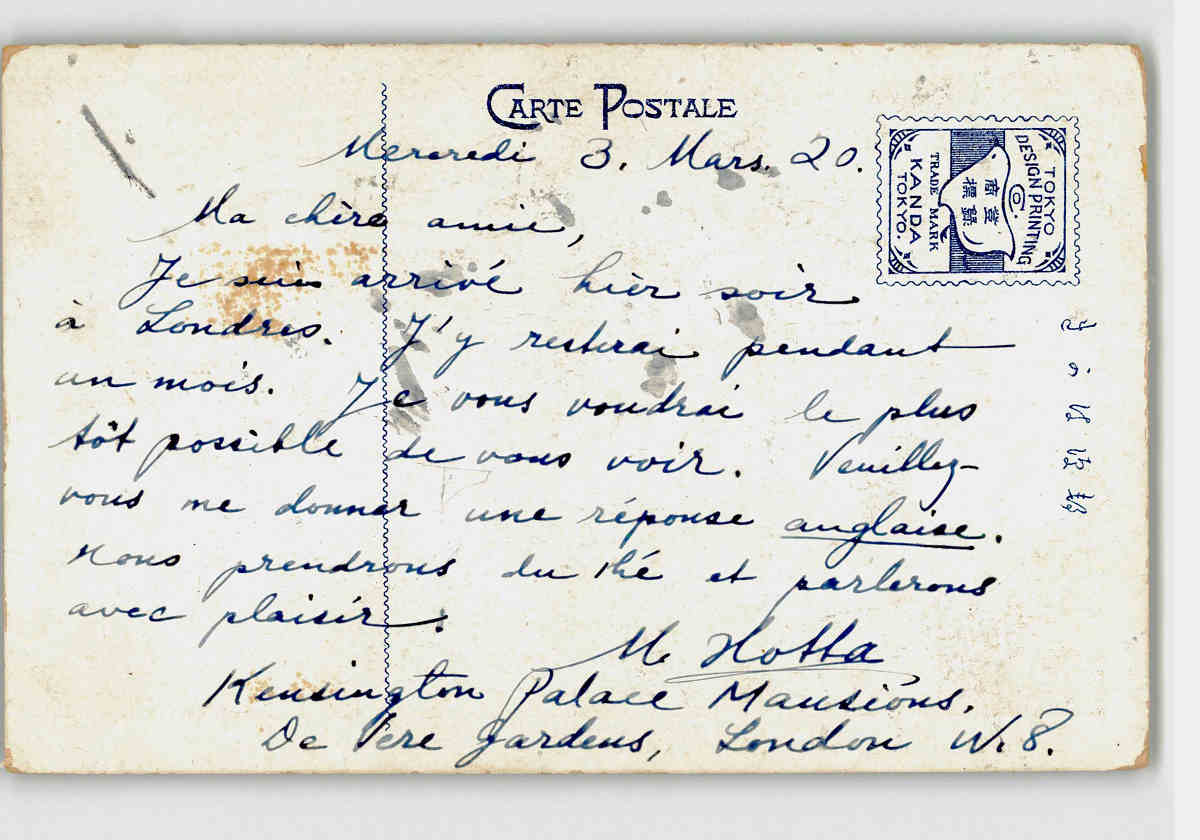 CARTE POSTALE
Mercredi 3. Mars. 20.
Ma chère amie,
Je suis arrivé hier soir
à Londres. J'y resterai pendant
un mois. Je vous voudrai le plus
tôt possible de vous voir. Veuillez-
vous me donner une réponse anglaise.
Nous prendrons du thé et parlerons
avec plaisir.
M. Hotta
Kensington Palace Mansions.
De Vere gardens, London W. 8.
TOKYO
DESIGN PRINTING
Co.
商標
登錄
TRADE MARK
KANDA
TOKYO.
きかは便郵